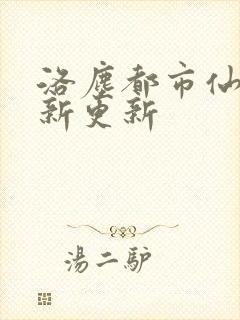 洛塵都市仙
新更新
湯二驴